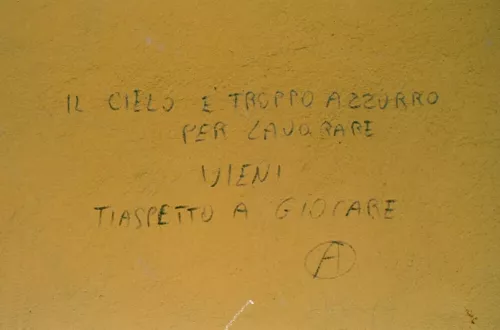 IL CIELO E' TROPPO AZZURRO
PER LAVORARE
VIENI
TI ASPETTO A GIOCARE
A